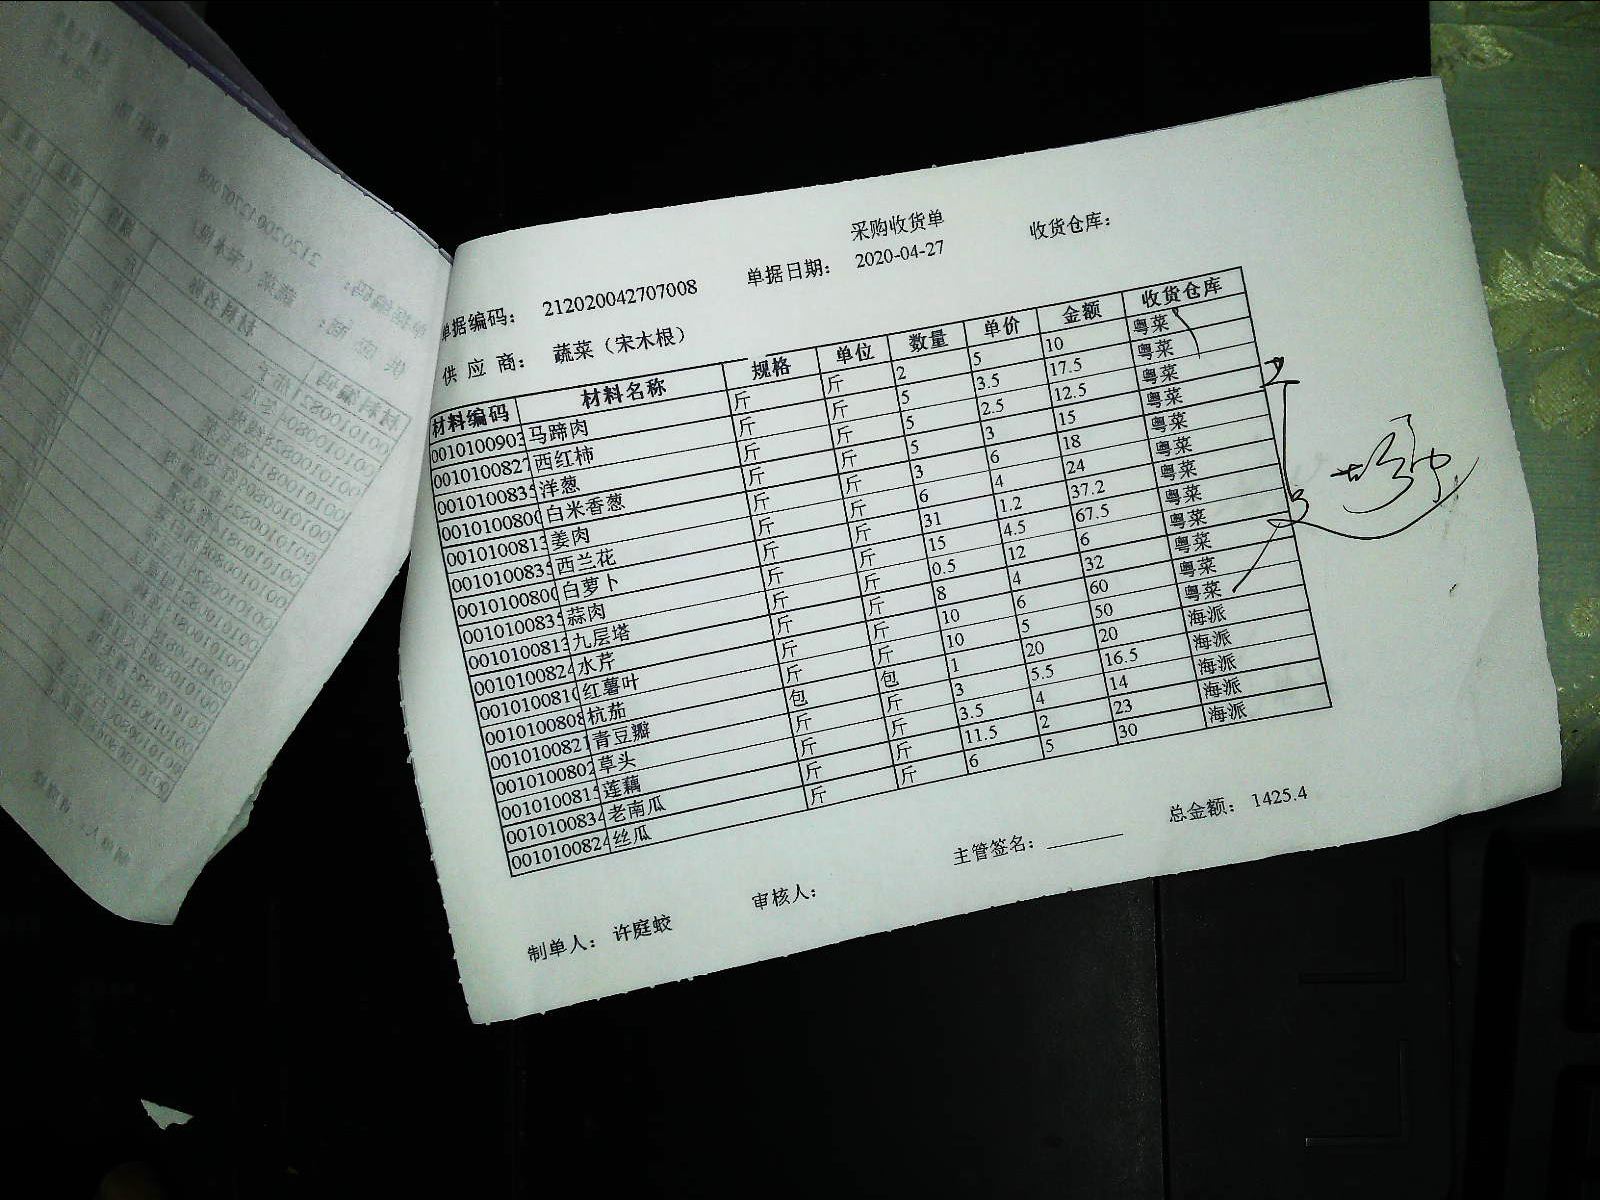 采购收货单
单据编码： 212020042707008 单据日期： 2020-04-27 收货仓库：
供 应 商： 蔬菜（宋木根）
材料编码 材料名称 规格 单位 数量 单价 金额 收货仓库
0010100903 马蹄肉 斤 斤 2 5 10 粤菜
0010100827 西红柿 斤 斤 5 3.5 17.5 粤菜
0010100835 洋葱 斤 斤 5 2.5 12.5 粤菜
001010080 白米香葱 斤 斤 5 3 15 粤菜
001010081 姜肉 斤 斤 3 6 18 粤菜
001010083 西兰花 斤 斤 6 4 24 粤菜
001010080 白萝卜 斤 斤 31 1.2 37.2 粤菜
001010083 蒜肉 斤 斤 15 4.5 67.5 粤菜
001010081 九层塔 斤 斤 0.5 12 6 粤菜
001010082 水芹 斤 斤 8 4 32 粤菜
001010081 红薯叶 斤 斤 10 6 60 粤菜
001010080 杭茄 斤 斤 10 5 50 粤菜
001010082 青豆瓣 包 包 1 20 20 海派
001010080 草头 斤 斤 3 5.5 16.5 海派
001010081 莲藕 斤 斤 3.5 4 14 海派
001010083 老南瓜 斤 斤 11.5 2 23 海派
001010082 丝瓜 斤 斤 6 5 30 海派
制单人： 许庭蛟 审核人： 主管签名： 总金额： 1425.4